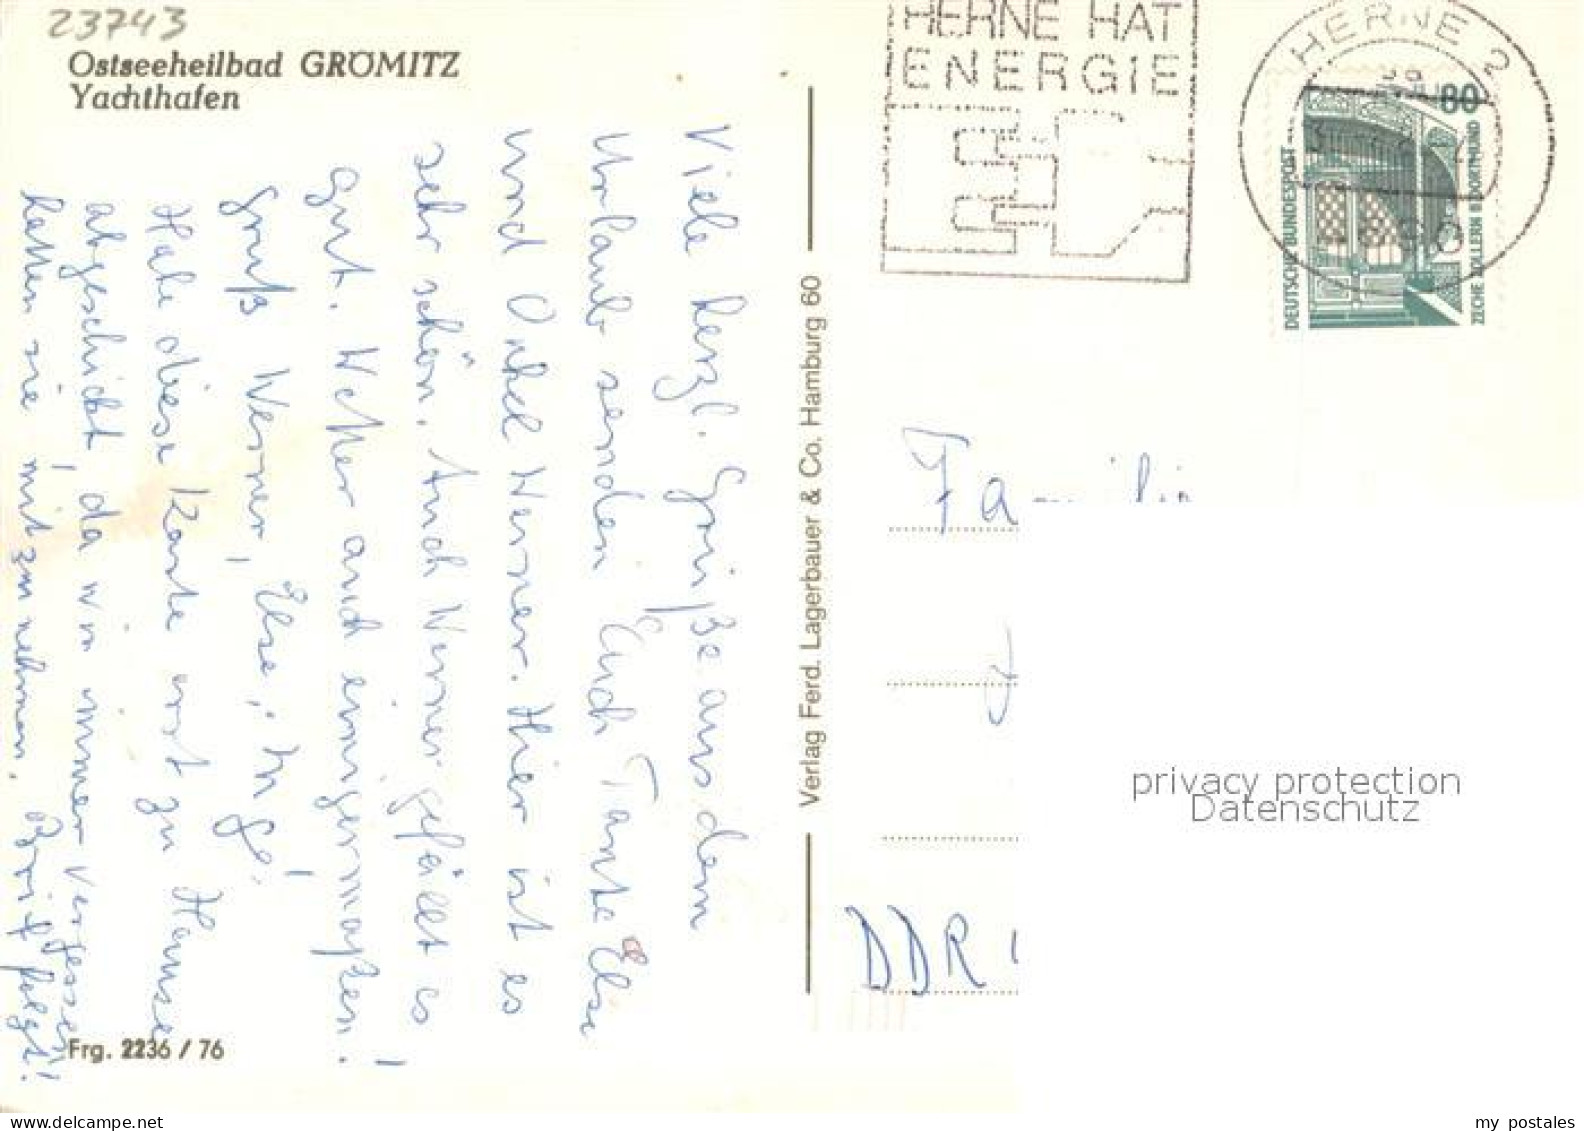 23743
Ostseeheilbad GRÖMITZ
Yachthafen
Viele herzl. Grüße aus dem
Urlaub senden Euch Tante Else
und Onkel Werner. Hier ist es
sehr schön. Auch Werner gefällt es
gut. Wetter auch einigermaßen!
Gruß Werner, Else, Inge!
Habe diese Karte erst zu Hause
abgeschickt, da wir immer vergessen
hatten sie mitzunehmen. Brief folgt!
Frg. 2236 / 76
Verlag Ferd. Lagerbauer & Co. Hamburg 60
HERNE HAT
ENERGIE
HERNE 2
80
DEUTSCHE BUNDESPOST
ZECHE ZOLLERN II DORTMUND
Familie
DDR
privacy protection
Datenschutz
my postales